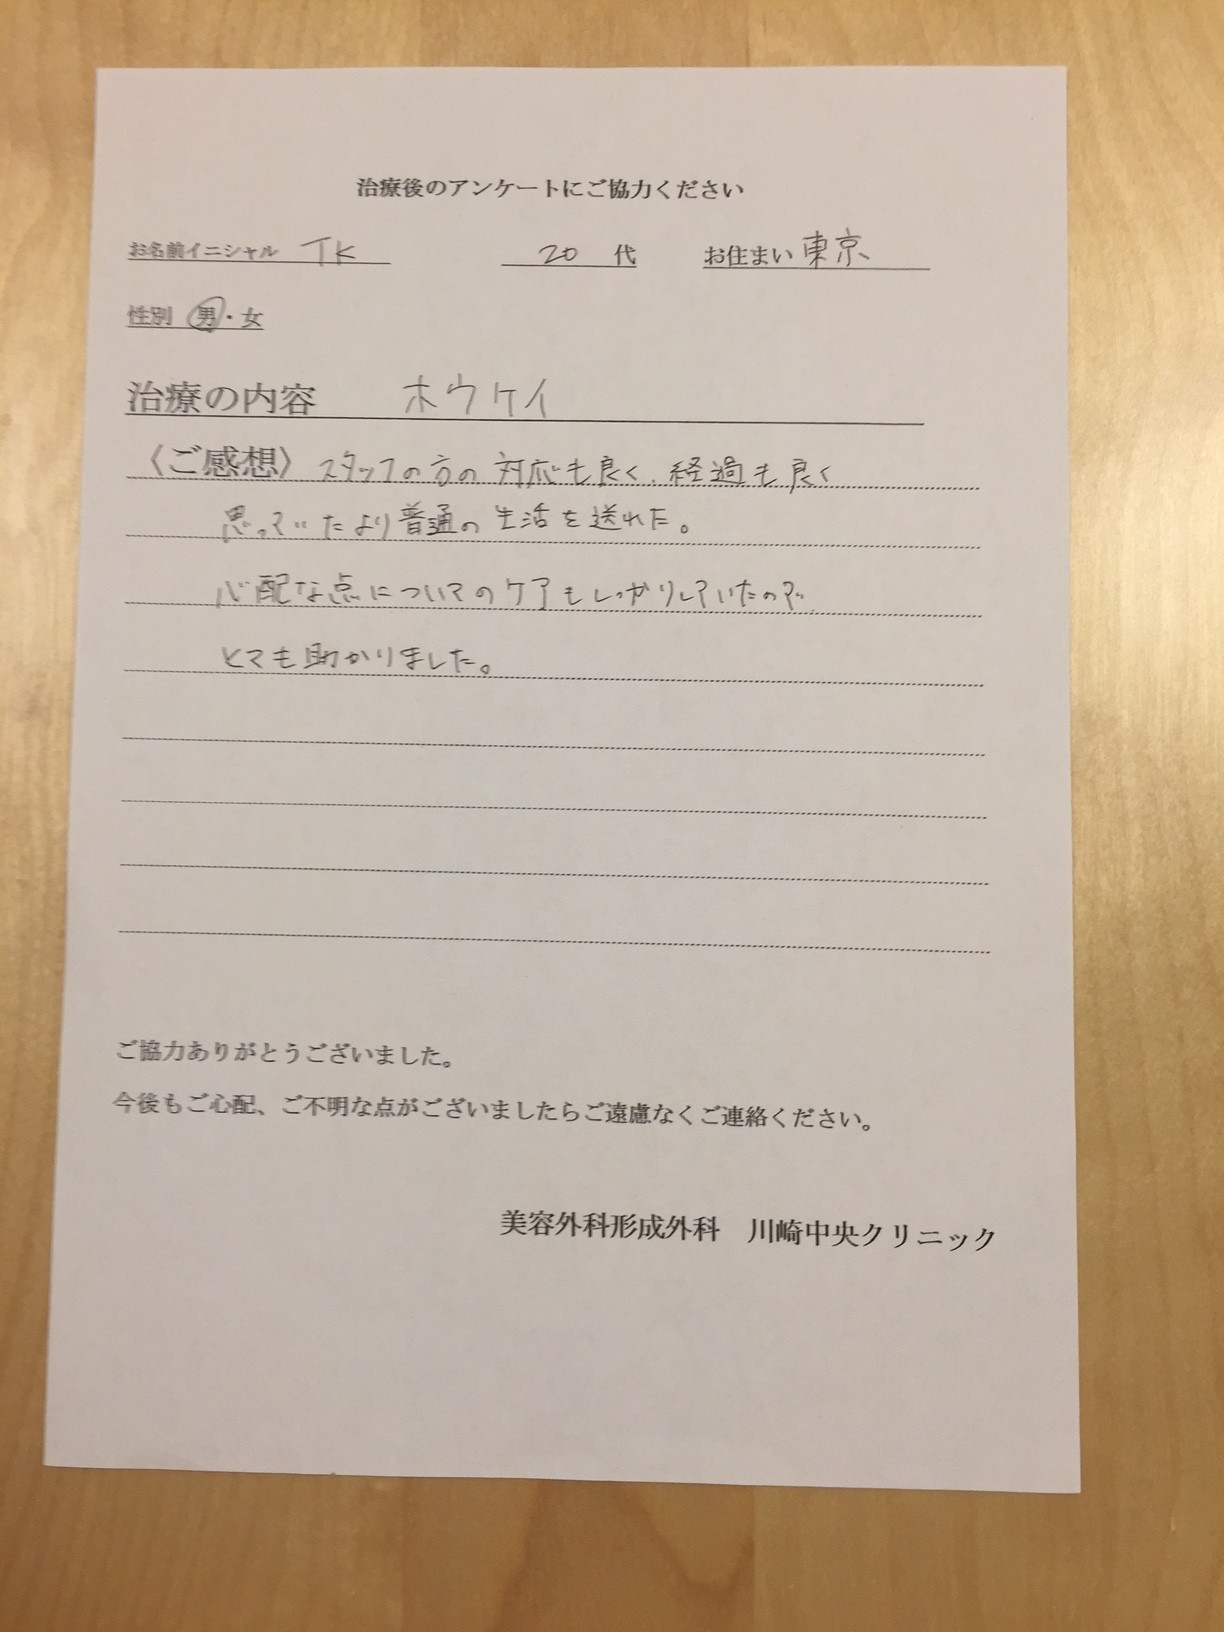 治療後のアンケートにご協力ください
お名前イニシャル TK 20 代 お住まい 東京
性別 男・女
治療の内容 ホウケイ
〈ご感想〉スタッフの方の対応も良く、経過も良く
思っていたより普通の生活を送れた。
心配な点についてのケアもしっかりしていたので
とても助かりました。
ご協力ありがとうございました。
今後もご心配、ご不明な点がございましたらご遠慮なくご連絡ください。
美容外科形成外科 川崎中央クリニック